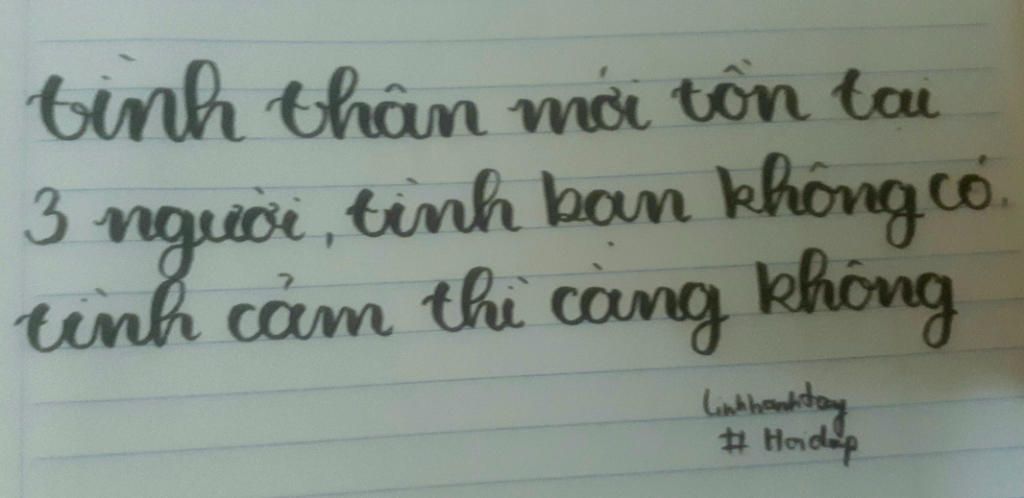 tình thân mới tồn tại
3 người, tình bạn không có.
tình cảm thì càng không
linhhanhdang
# Hoidap